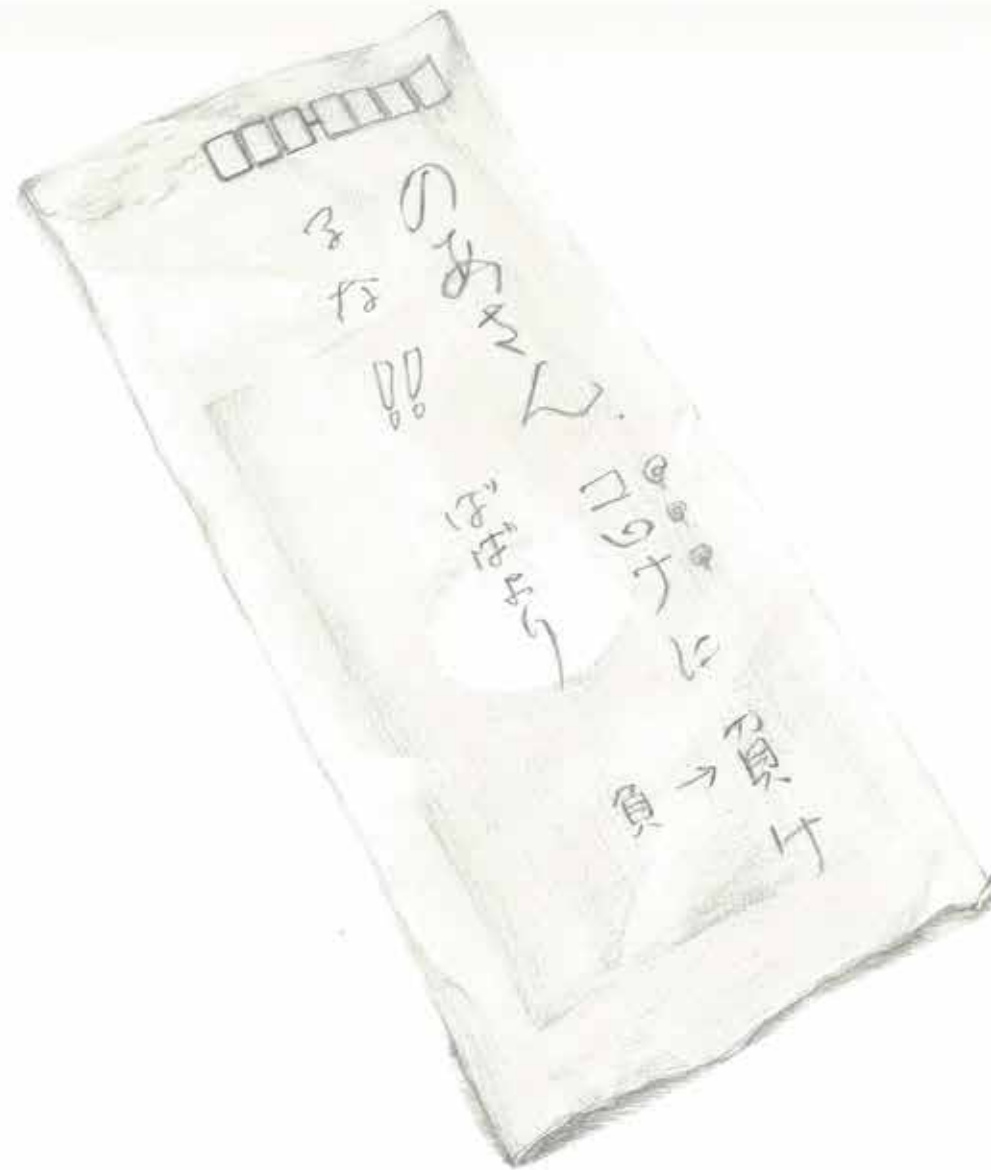 のあさん.コロナに負け
負→
るな!!
ばばより